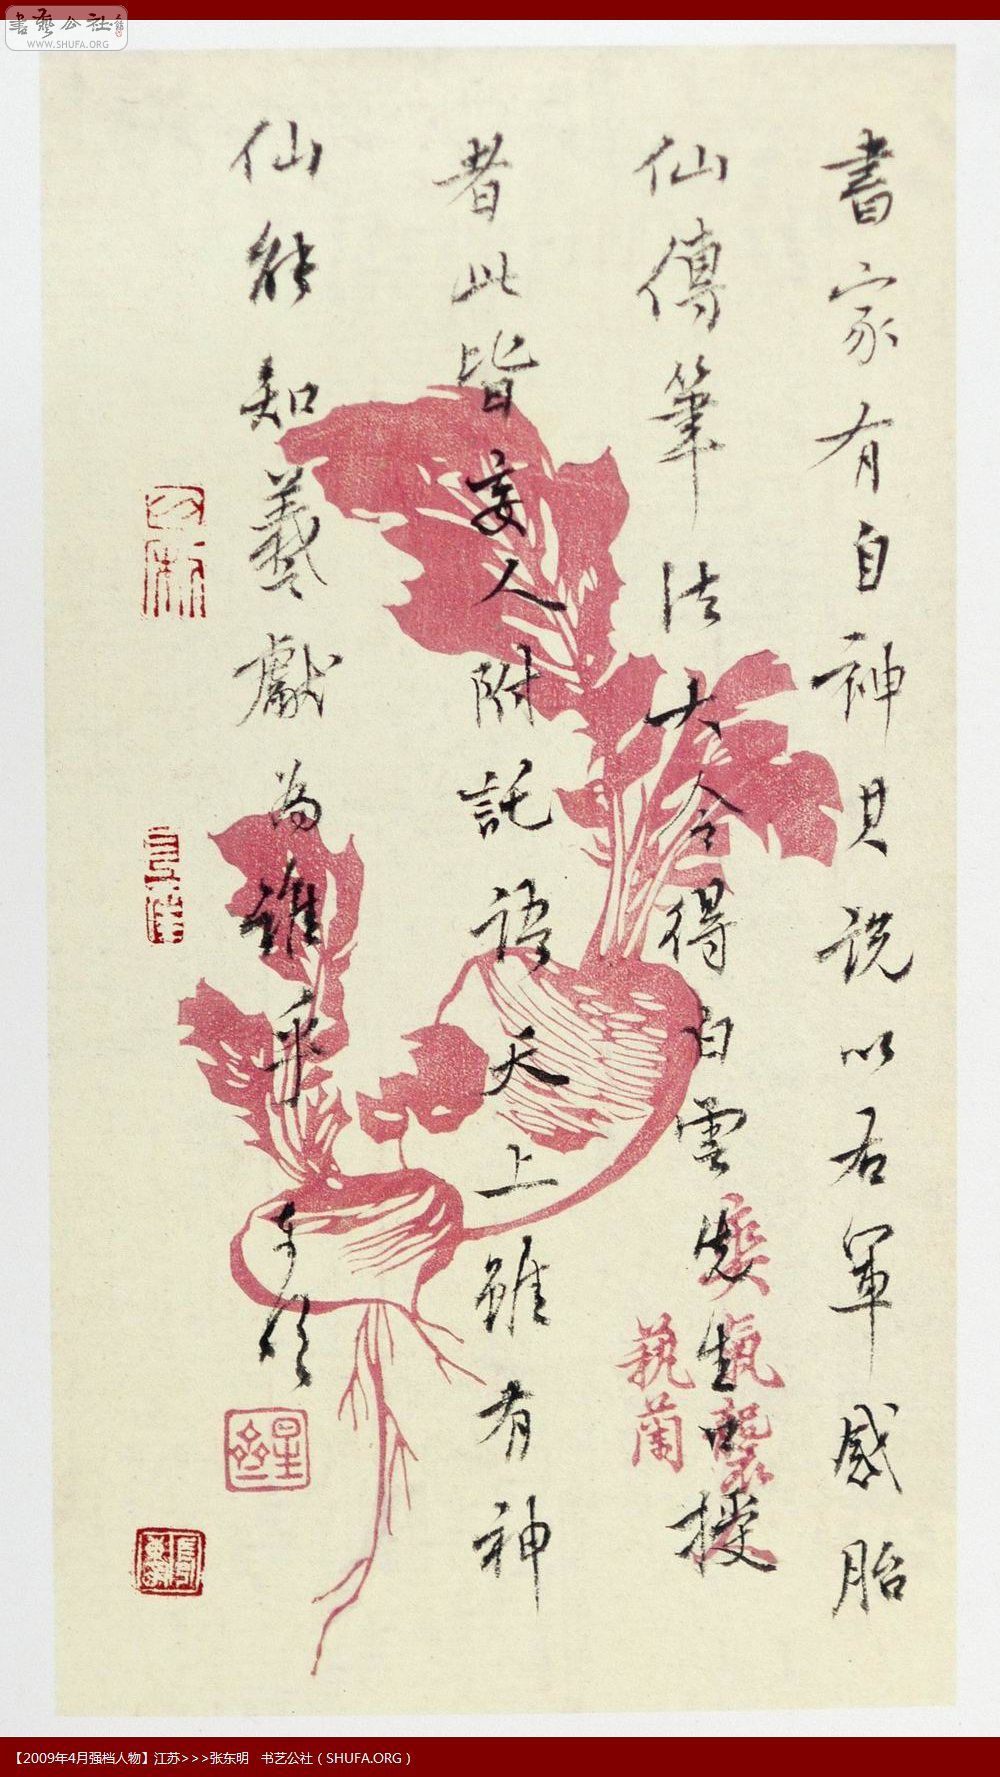 書藝公社
WWW.SHUFA.ORG
書家有自神其说以右軍感胎
仙傳筆法大令得白雲先生口授
者此皆妄人附託語天上雖有神
仙能知羲獻為誰乎
東明
【2009年4月强档人物】江苏>>>张东明 书艺公社（SHUFA.ORG）